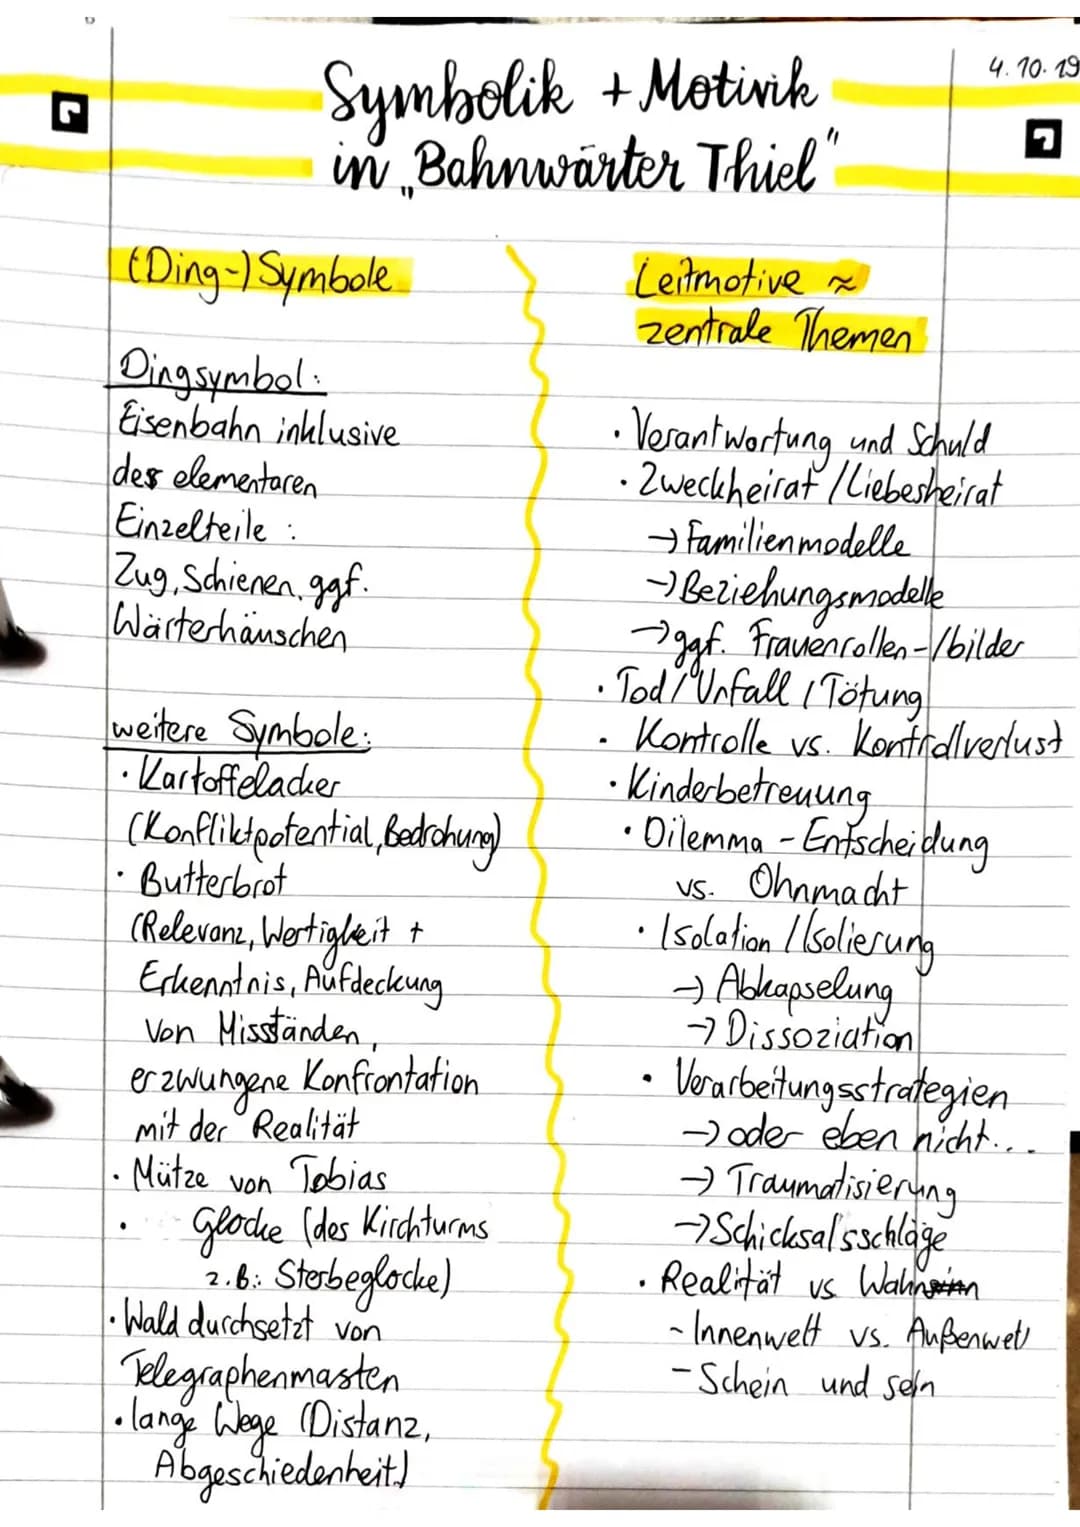 4.10.19
Symbolik + Motivik
in „Bahnwärter Thiel"
(Ding-) Symbole
Dingsymbol:
Eisenbahn inklusive
der elementaren
Einzelteile :
Zug, Schienen, ggf.
Wärterhäuschen
weitere Symbole:
· Kartoffelacker
(Konfliktpotential, Bedrohung)
· Butterbrot
(Relevanz, Wertigkeit +
Erkenntnis, Aufdeckung
von Missständen,
erzwungene Konfrontation
mit der Realität
· Mütze von Tobias
· Glocke (des Kirchturms
z.B.: Sterbeglocke)
· Wald durchsetzt von
Telegraphenmasten
· lange Wege (Distanz,
Abgeschiedenheit)
Leitmotive ≈
zentrale Themen
· Verantwortung und Schuld
· Zweckheirat / Liebesheirat
→ Familienmodelle
→ Beziehungsmodelle
→ ggf. Frauenrollen-/bilder
· Tod / Unfall / Tötung
· Kontrolle vs. Kontrollverlust
· Kinderbetreuung
· Dilemma - Entscheidung
vs. Ohnmacht
· Isolation / Isolierung
→ Abkapselung
→ Dissoziation
· Verarbeitungsstrategien
→ oder eben nicht...
→ Traumatisierung
→ Schicksalsschläge
· Realität vs Wahnsinn
~ Innenwelt vs. Außenwelt
- Schein und sein